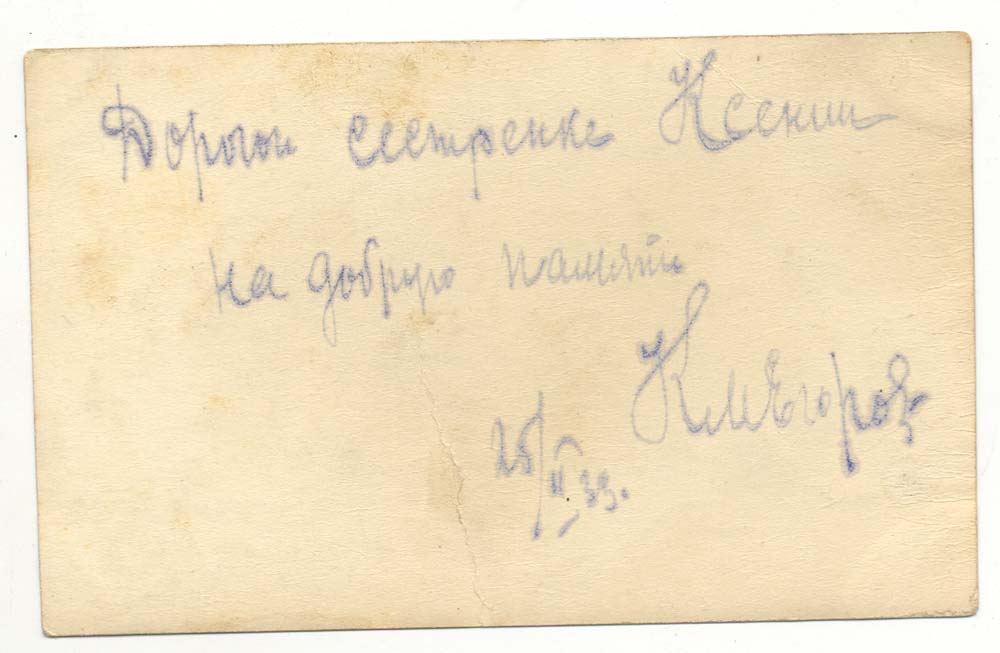 Дорогой сестренке Ксении
на добрую память
КмЕгоров
25/II 39.